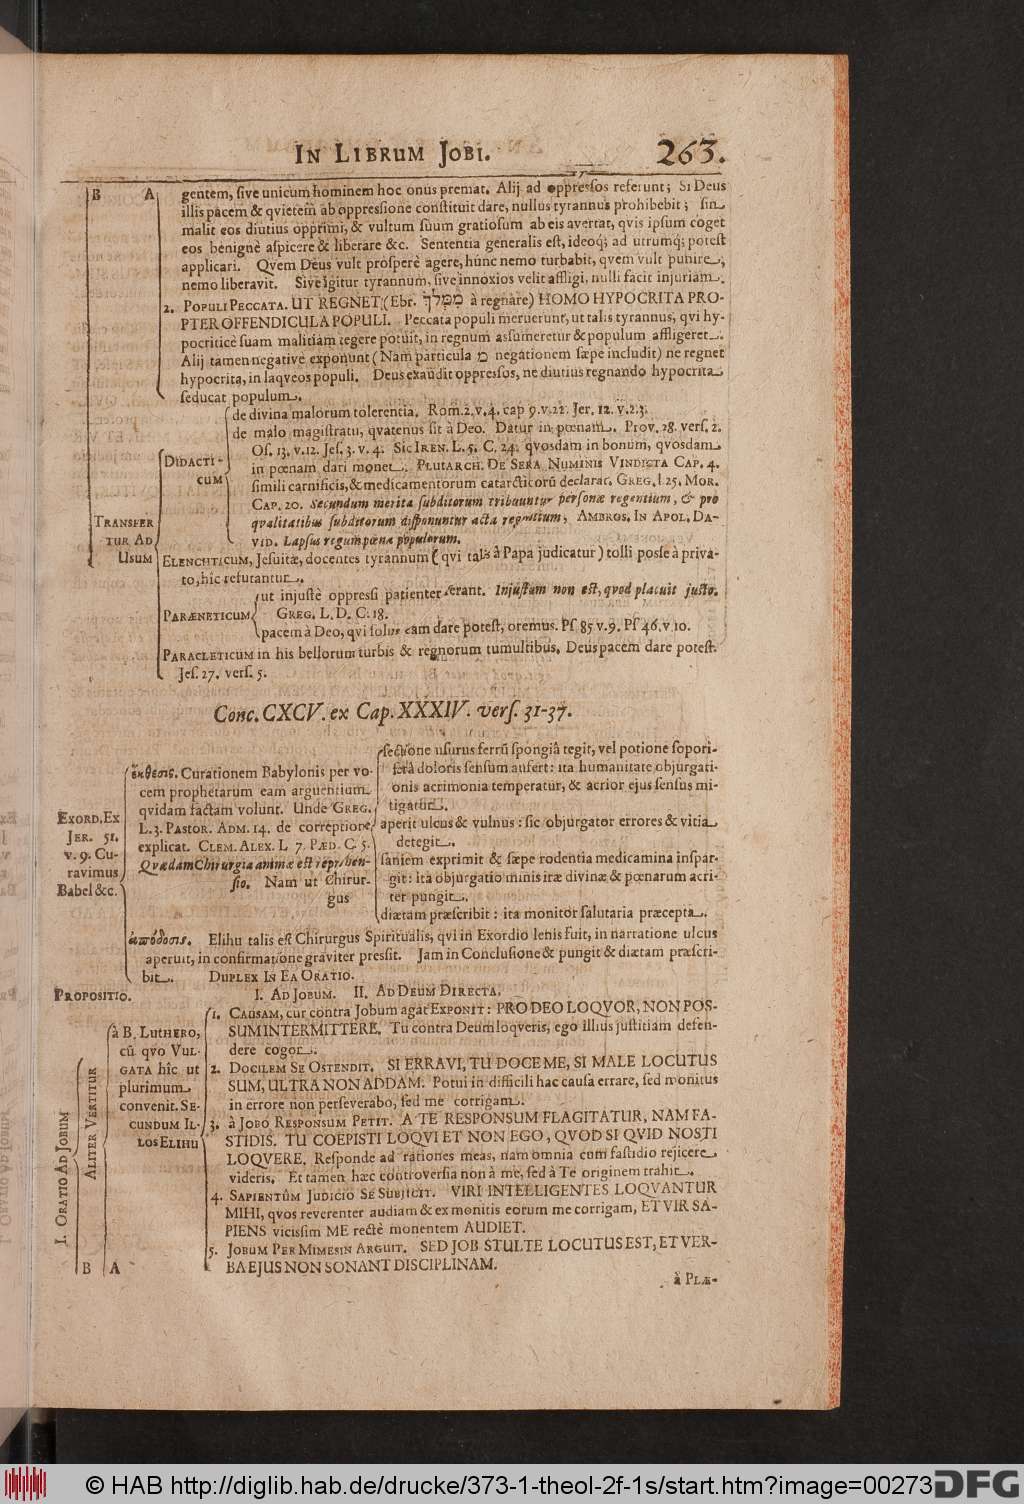 IN LIBRUM JOBI. 263.
B A gentem, sive unicum hominem hoc onus premat. Alij ad oppressos referunt; SI Deus
illis pacem & qvietem ab oppressione constituit dare, nullus tyrannus prohibebit; sin
malit eos diutius opprimi, & vultum suum gratiosum ab eis avertat, qvis ipsum coget
eos benignè aspicere & liberare &c. Sententia generalis est, ideoq; ad utrumq; potest
applicari. Qvem Deus vult prosperè agere, hunc nemo turbabit, qvem vult punire,
nemo liberavit. Sive igitur tyrannum, sive innoxios velit affligi, nulli facit injuriam.
2. POPULI PECCATA. UT REGNET (Ebr. ממלך à regnare) HOMO HYPOCRITA PRO-
PTER OFFENDICULA POPULI. Peccata populi meruerunt, ut talis tyrannus, qvi hy-
pocriticè suam malitiam tegere potuit, in regnum assumeretur & populum affligeret.
Alij tamen negativè exponunt (Nam particula מ negationem sæpe includit) ne regnet
hypocrita, in laqveos populi. Deus exaudit oppressos, ne diutius regnando hypocrita
seducat populum.
TRANSFER
TUR AD
USUM
DIDACTI-
CUM
de divina malorum tolerentia. Rom. 2. v. 4. cap 9. v. 22. Jer. 12. v. 2. 3.
de malo magistratu, qvatenus sit à Deo. Datur in pœnam. Prov. 28. vers. 2.
Os. 13. v. 12. Jes. 3. v. 4. Sic IREN. L. 5. C. 24. qvosdam in bonum, qvosdam
in pœnam dari monet. PLUTARCH. DE SERA NUMINIS VINDICTA CAP. 4.
simili carnificis, & medicamentorum catarcticorũ declarat. GREG. l. 25. MOR.
CAP. 20. Secundum merita subditorum tribuuntur personæ regentium, & pro
qvalitatibus subditorum disponuntur acta regentium, AMBROS. IN APOL. DA-
VID. Lapsus regum pœna populorum.
ELENCHTICUM, Jesuitæ, docentes tyrannum (qvi talis à Papa judicatur) tolli posse à priva-
to, hîc refutantur.
PARÆNETICUM
ut injustè oppressi patienter ferant. Injustum non est, qvod placuit justo.
GREG. L. D. C. 18.
pacem à Deo, qvi solus eam dare potest, oremus. Ps. 85 v. 9. Ps 46. v. 10.
PARACLETICUM in his bellorum turbis & regnorum tumultibus. Deus pacem dare potest.
Jes. 27. vers. 5.
Conc. CXCV. ex Cap. XXXIV. vers. 31-37.
EXORD. EX
JER. 51.
v. 9. Cu-
ravimus
Babel &c.
ἔκθεσις. Curationem Babylonis per vo-
cem prophetarum eam arguentium
qvidam factam volunt. Unde GREG.
L. 3. PASTOR. ADM. 14. de correptione
explicat. CLEM. ALEX. L 7. PÆD. C. 5.
Qvædam Chirurgia animæ est reprehen-
sio. Nam ut Chirur-
gus
sectione usurus ferrũ spongiâ tegit, vel potione sopori-
ferâ doloris sensum aufert: ita humanitate objurgati-
onis acrimonia temperatur, & acrior ejus sensus mi-
tigatur.
aperit ulcus & vulnus: sic objurgator errores & vitia
detegit.
saniem exprimit & sæpe rodentia medicamina inspar-
git: ita objurgatio minis iræ divinæ & pœnarum acri-
ter pungit.
diætam præscribit: ita monitor salutaria præcepta.
ἀπόδοσις. Elihu talis est Chirurgus Spiritualis, qvi in Exordio lenis fuit, in narratione ulcus
aperuit, in confirmatione graviter pressit. Jam in Conclusione & pungit & diætam præscri-
bit. DUPLEX IN EA ORATIO.
PROPOSITIO. I. AD JOBUM. II. AD DEUM DIRECTA.
I. ORATIO AD JOBUM
ALITER VERTITUR
à B. LUTHERO,
cũ qvo VUL-
GATA hîc ut
plurimum
convenit. SE-
CUNDUM IL-
LOS ELIHU
1. CAUSAM, cur contra Jobum agat EXPONIT: PRO DEO LOQVOR, NON POS-
SUM INTERMITTERE. Tu contra Deum loqveris, ego illius justitiam defen-
dere cogor.
2. DOCILEM SE OSTENDIT. SI ERRAVI, TU DOCE ME, SI MALE LOCUTUS
SUM, ULTRA NON ADDAM. Potui in difficili hac causa errare, sed monitus
in errore non perseverabo, sed me corrigam.
3. à JOBO RESPONSUM PETIT. A TE RESPONSUM FLAGITATUR, NAM FA-
STIDIS. TU COEPISTI LOQVI ET NON EGO, QVOD SI QVID NOSTI
LOQVERE. Responde ad rationes meas, nam omnia cum fastidio rejicere
videris. Et tamen hæc controversia non à me, sed à Te originem trahit.
4. SAPIENTÛM JUDICIO SE SUBJICIT. VIRI INTELLIGENTES LOQVANTUR
MIHI, qvos reverenter audiam & ex monitis eorum me corrigam, ET VIR SA-
PIENS vicissim ME rectè monentem AUDIET.
5. JOBUM PER MIMESIN ARGUIT. SED JOB STULTE LOCUTUS EST, ET VER-
BA EJUS NON SONANT DISCIPLINAM.
B A
à PLÆ-
© HAB http://diglib.hab.de/drucke/373-1-theol-2f-1s/start.htm?image=00273
DFG